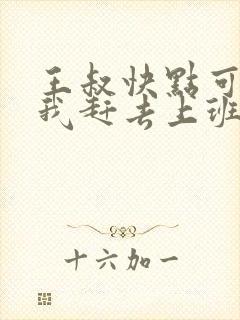 王叔快點可
我赶去上班
十六加一